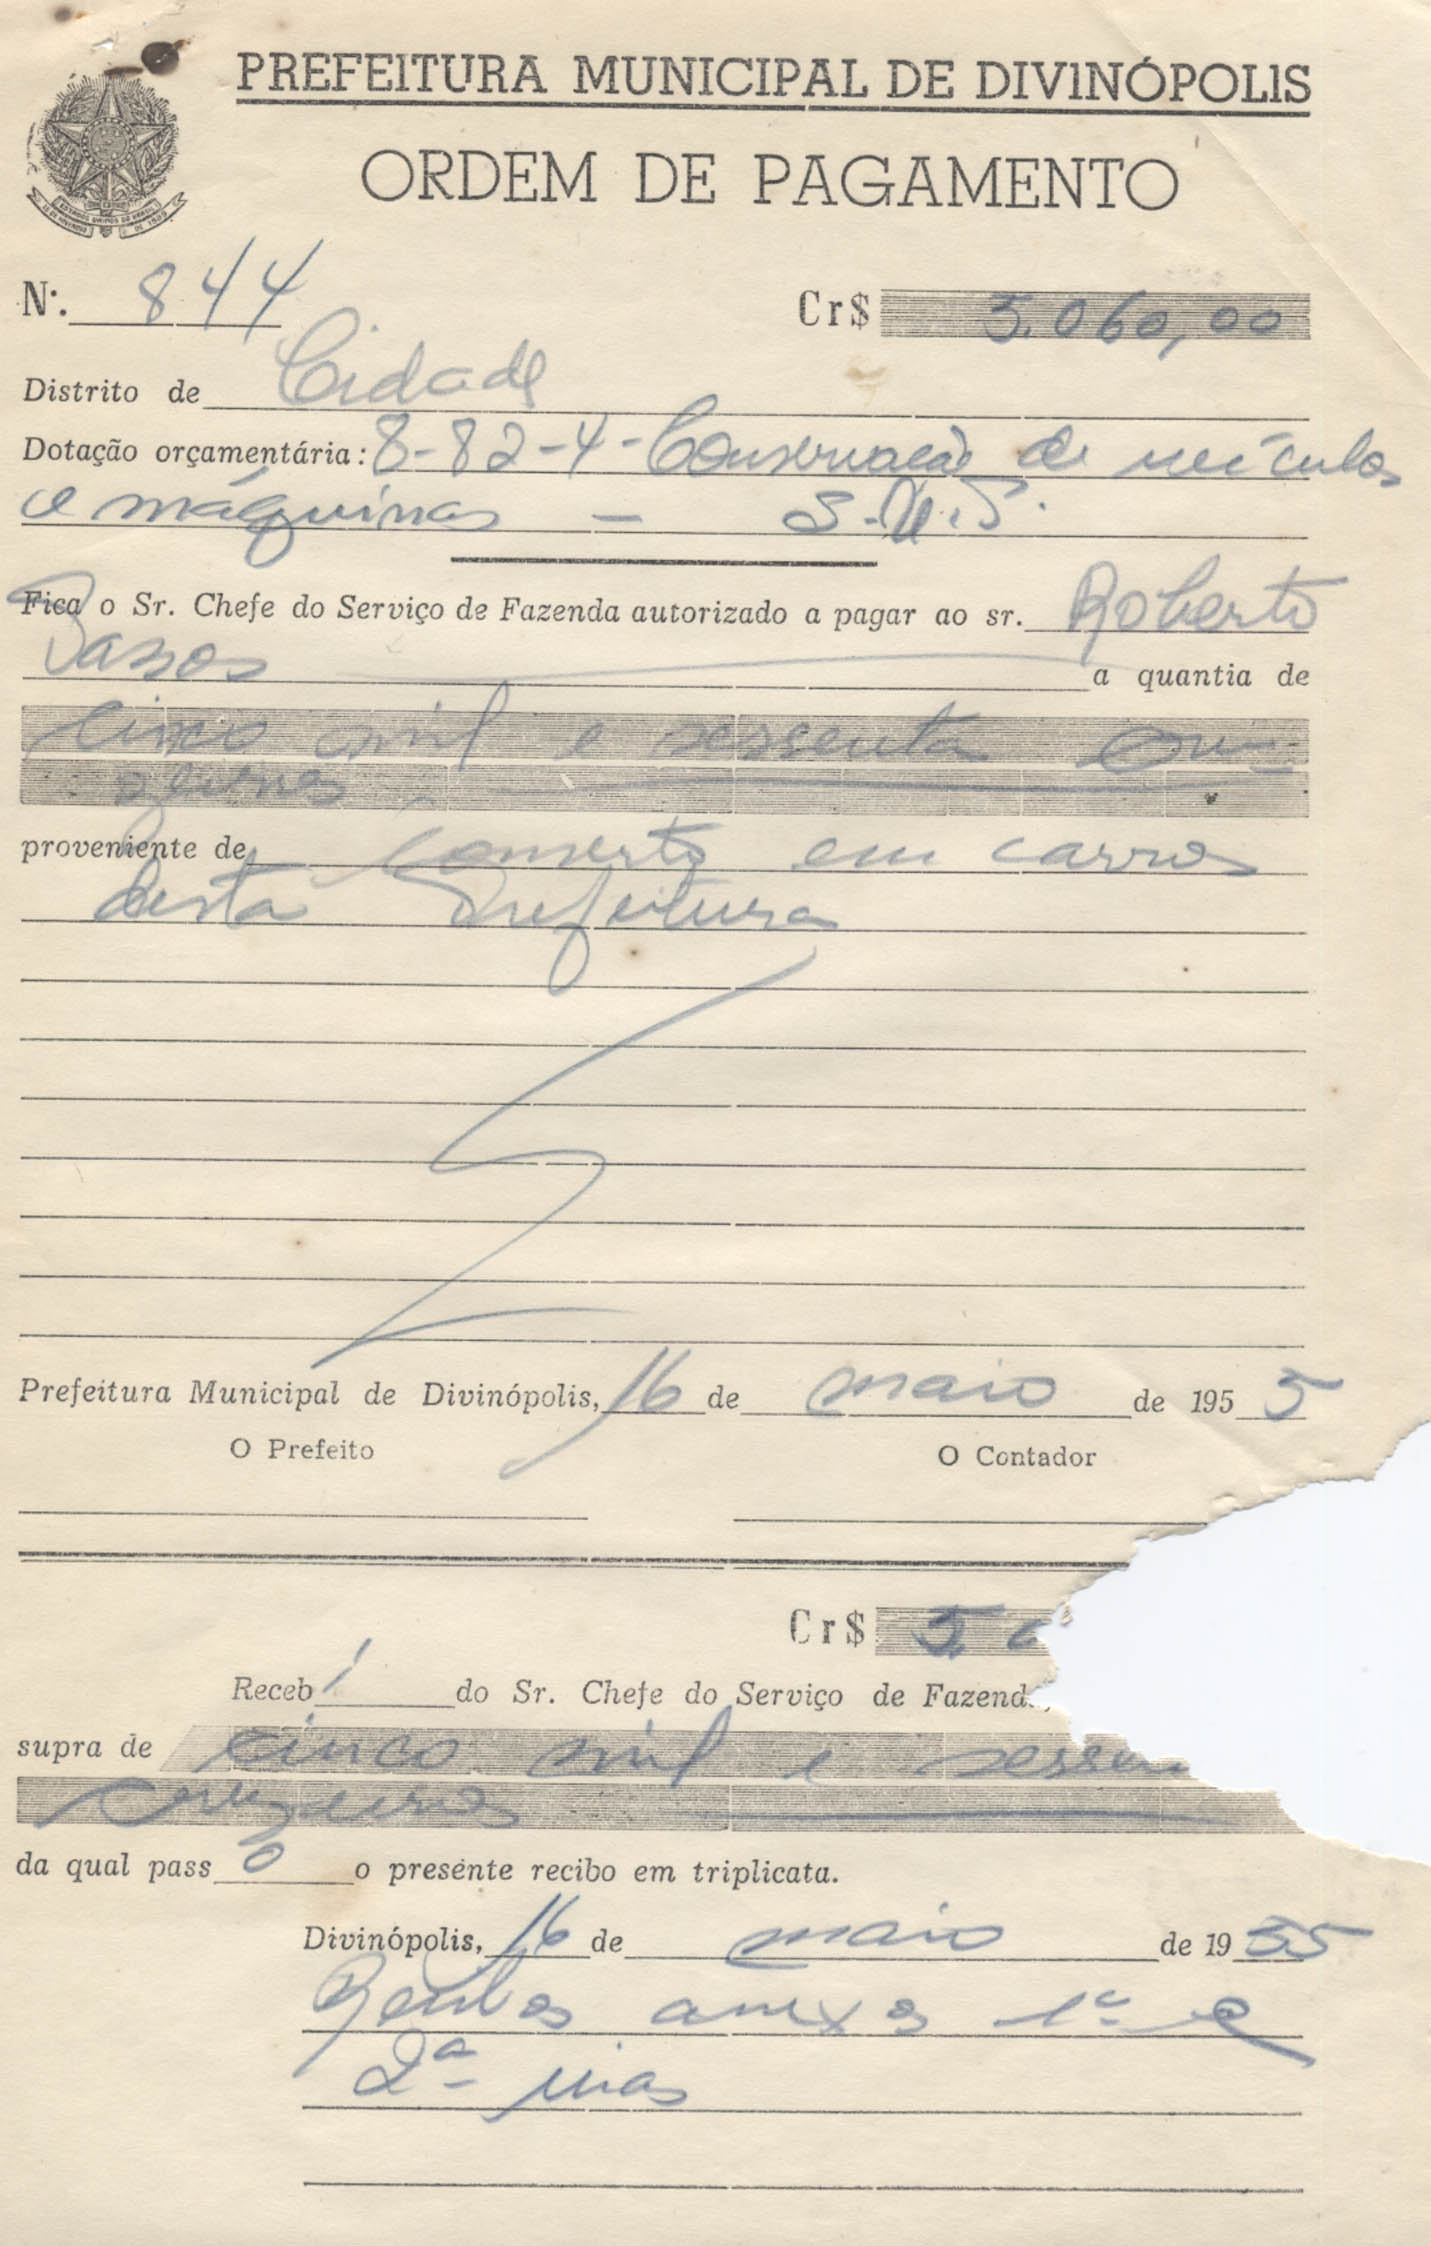 PREFEITURA MUNICIPAL DE DIVINÓPOLIS
ORDEM DE PAGAMENTO
N.º 844 Cr$ 5.060,00
Distrito de Cidade
Dotação orçamentária: 8-82-4-Conservação de veículos
e máquinas — S.U.
Fica o Sr. Chefe do Serviço de Fazenda autorizado a pagar ao sr. Roberto
Passos a quantia de
cinco mil e sessenta cru-
zeiros
proveniente de conserto em carros
desta Prefeitura
Prefeitura Municipal de Divinópolis, 16 de maio de 1955
O Prefeito O Contador
Cr$ 5.0
Recebi do Sr. Chefe do Serviço de Fazend
supra de cinco mil e sessen
cruzeiros
da qual passo o presente recibo em triplicata.
Divinópolis, 16 de maio de 1955
anexos 1ª e
2ª vias